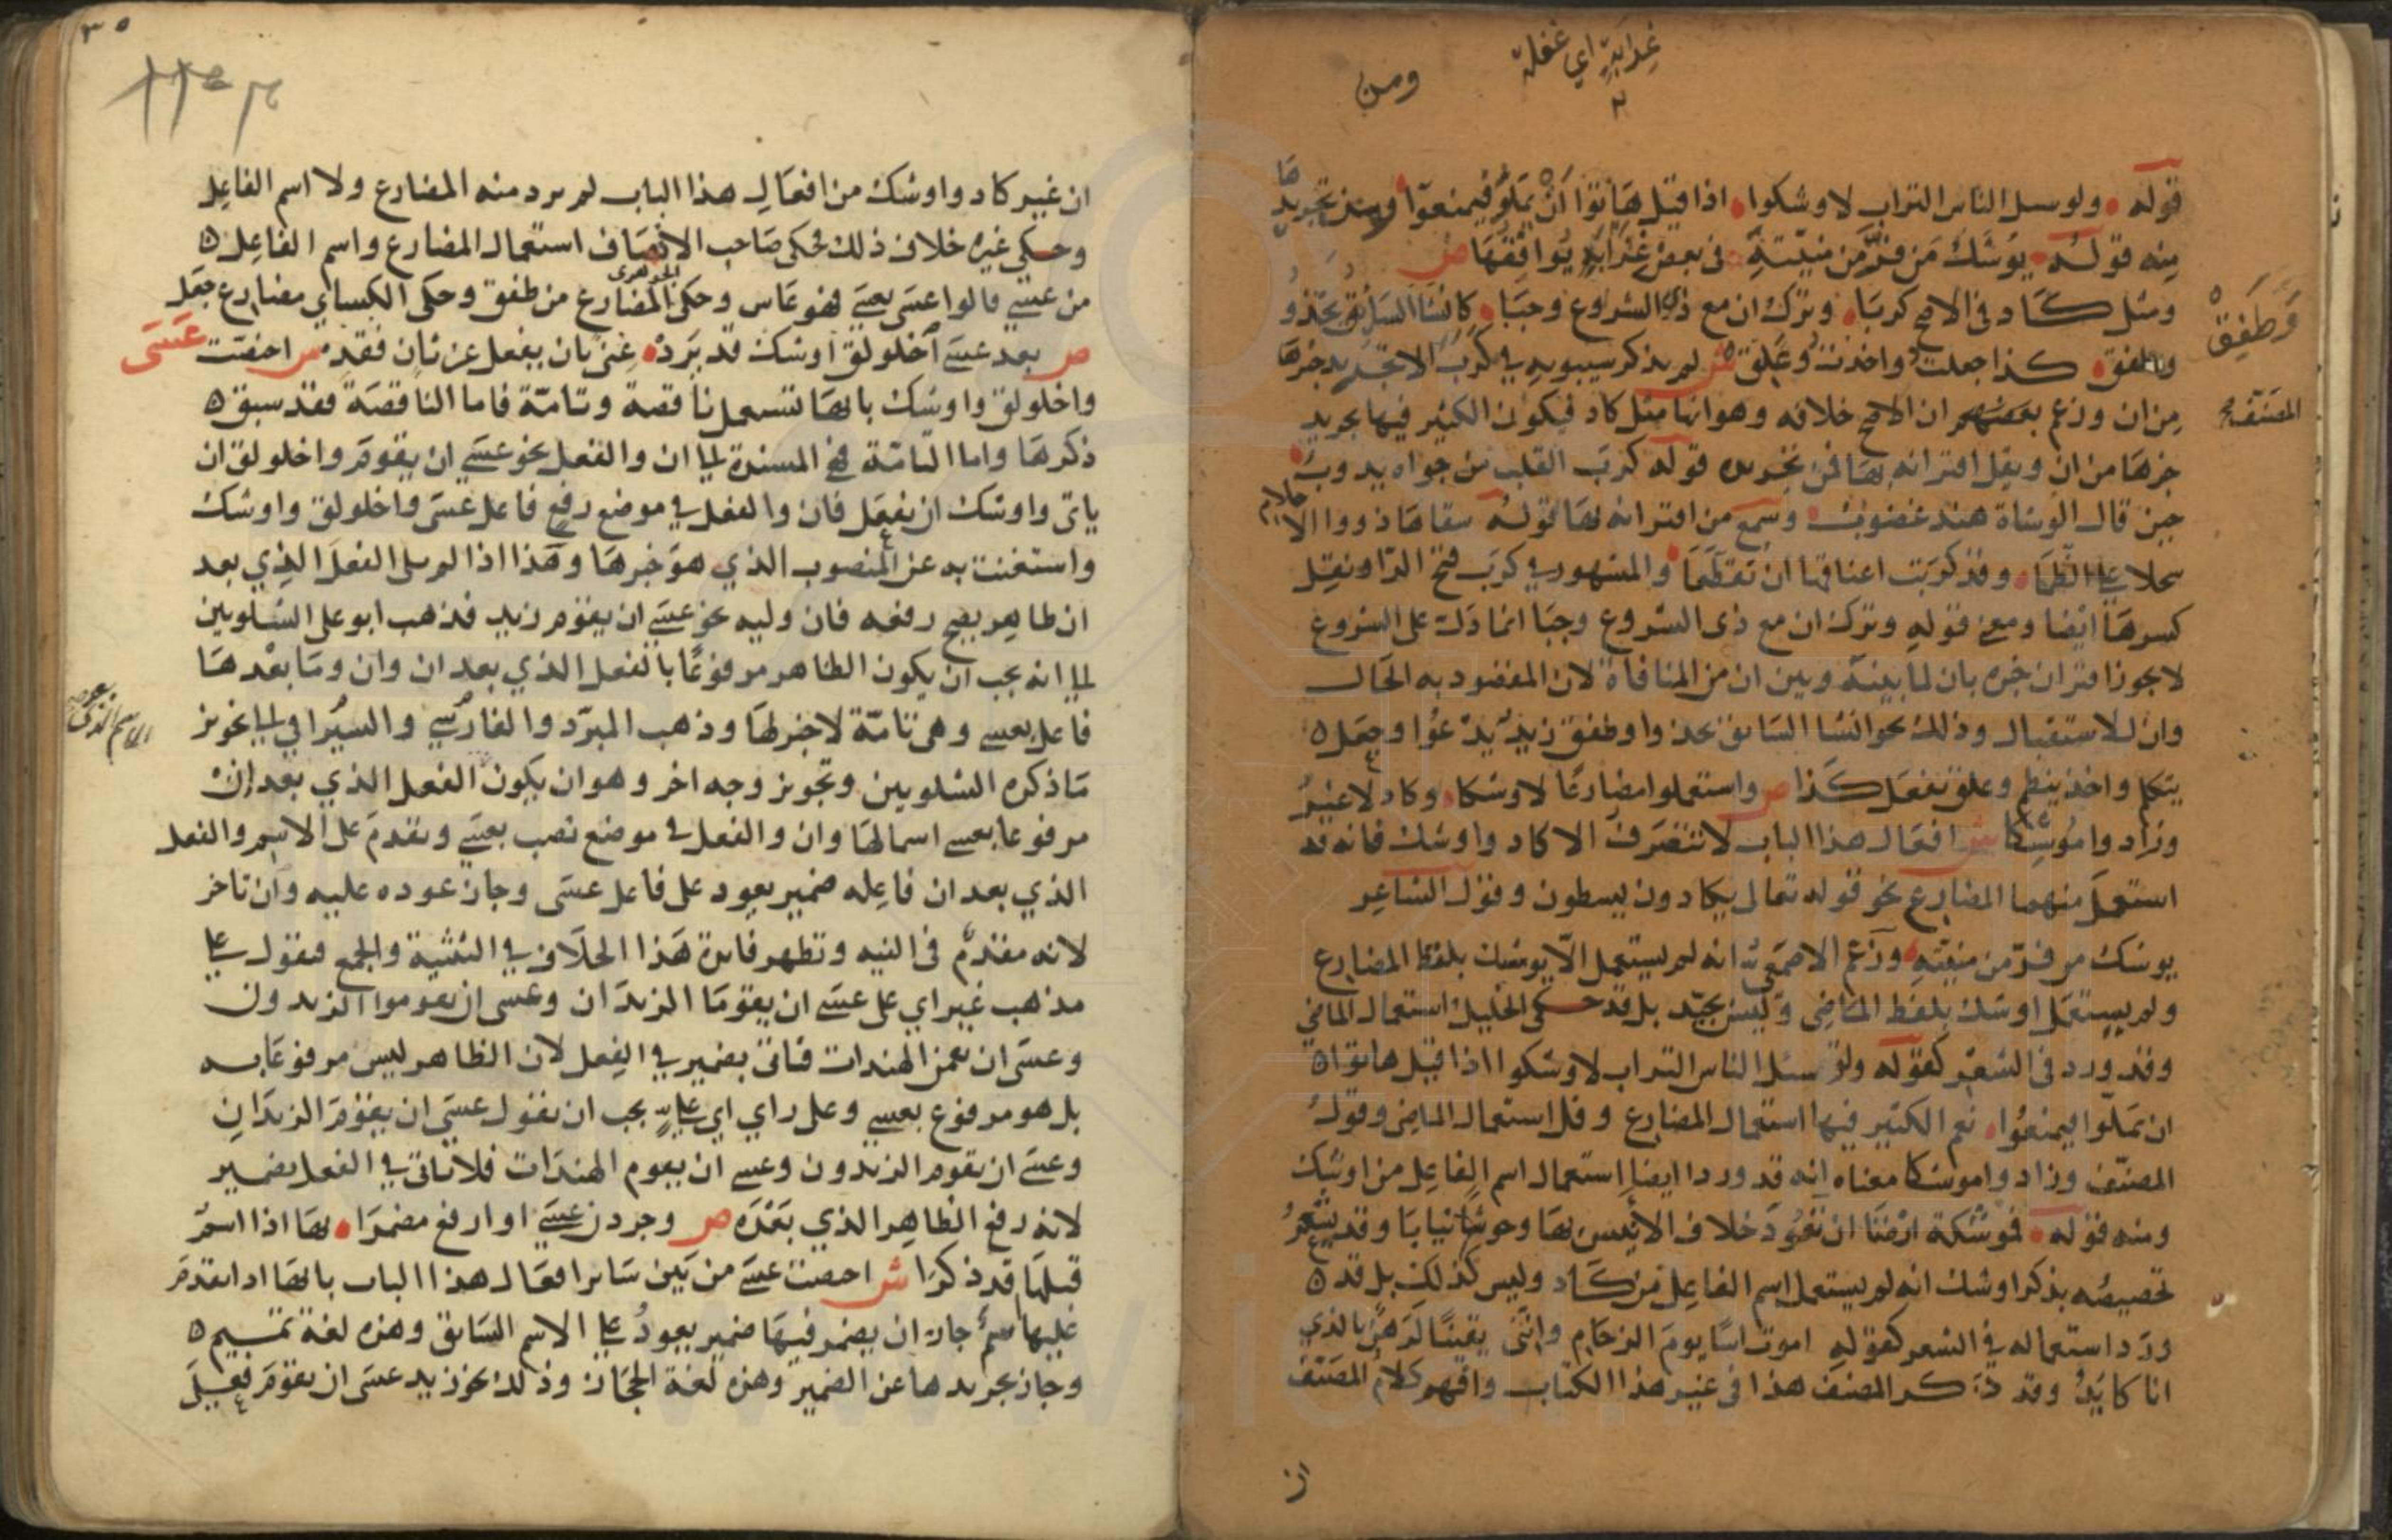 غرابة اي غفلة
ومن
قوله ولو سئل الناس التراب لاوشكوا اذا قيل هاتوا ان يملوا فيمنعوا ومن تجريدها
منه قوله يوشك من فر من منيته في بعض غراته يوافقها ص
ومثل كاد في الاصح كربا وترك ان مع ذي الشروع وجبا كانشا السائق يحدو
وطفق كذا جعلت واخذت وعلق ش لم يذكر سيبويه في كرب الا تجريد خبرها
وطفق
المصنف
من ان وزعم بعضهم ان الاصح خلافه وهو انها مثل كاد فيكون الكثير فيها تجريد
خبرها من ان ويقل اقترانه بها فمن تجريده قوله كرب القلب من جواه يذوب
حين قال الوشاة هند غضوب وسمع من اقترانه بها قوله سقاها ذووا الاحلام
سجلا على الظما وقد كربت اعناقها ان تقطعا والمشهور في كرب فتح الرا ونقل
كسرها ايضا ومعنى قوله وترك ان مع ذي الشروع وجبا ان ما دل على الشروع
لا يجوز اقتران خبره بان لما بينه وبين ان من المنافاة لان المقصود به الحال
وان للاستقبال وذلك نحو انشا السائق يحدوا وطفق زيد يدعوا وجعل
يتكلم واخذ ينظم وعلق يفعل كذا ص واستعملوا مضارعا لاوشكا وكاد لا غير
وزاد وا موشكا ش افعال هذا الباب لا تتصرف الا كاد واوشك فانه قد
استعمل منهما المضارع نحو قوله تعالى يكادون يسطون وقول الشاعر
يوشك من فر من منيته وزعم الاصمعي انه لم يستعمل الا يوشك بلفظ المضارع
ولم يستعمل اوشك بلفظ الماضي وليس بجيد بل قد حكى الخليل استعمال الماضي
وقد ورد في الشعر كقوله ولو سئل الناس التراب لاوشكوا اذا قيل هاتوا
ان يملوا فيمنعوا نعم الكثير فيها استعمال المضارع وقل استعمال الماضي وقول
المصنف وزاد وا موشكا معناه انه قد ورد ايضا استعمال اسم الفاعل من اوشك
ومنه قوله فموشكة ارضنا ان تعود خلاف الانيس بها وحوشا يبابا وقد يشعر
تخصيصه بذكر اوشك انه لم يستعمل اسم الفاعل من كاد وليس كذلك بل قد
ورد استعماله في الشعر كقوله اموت اسا يوم الرجام وانني يقينا لرهن بالذي
انا كايد وقد ذكر المصنف هذا في غير هذا الكتاب وافهم كلام المصنف
ان
٣٥
ان غير كاد واوشك من افعال هذا الباب لم يرد منه المضارع ولا اسم الفاعل
وحكى غيره خلاف ذلك فحكى صاحب الانصاف استعمال المضارع واسم الفاعل
من عسى قالوا عسى يعسي فهو عاس وحكى الجوهري المضارع من طفق وحكى الكسائي مضارع جعل
ص بعد عسى اخلولق اوشك قد يرد غنى بان يفعل عن ثان فقد ش اختصت عسى
واخلولق واوشك بانها تستعمل ناقصة وتامة فاما الناقصة فقد سبق
ذكرها واما التامة فهي المسندة الى ان والفعل نحو عسى ان يقوم واخلولق ان
ياتي واوشك ان يفعل فان والفعل في موضع رفع فاعل عسى واخلولق واوشك
واستغنت به عن المنصوب الذي هو خبرها وهذا اذا لم يلي الفعل الذي بعد
ان ظاهر يصح رفعه فان وليه نحو عسى ان يقوم زيد فذهب ابو علي الشلوبين
الى انه يجب ان يكون الظاهر مرفوعا بالفعل الذي بعد ان وان وما بعدها
فاعل بعسى وهي تامة لا خبر لها وذهب المبرد والفارسي والسيرافي الى تجويز
ما ذكره الشلوبين وتجويز وجه اخر وهو ان يكون الفعل الذي بعد ان
مرفوعا بعسى اسما لها وان والفعل في موضع نصب بعسى وتقدم على الاسم والفعل
الذي بعد ان فاعله ضمير يعود على فاعل عسى وجاز عوده عليه وان تاخر
لانه مقدم في النيه وتظهر فائدة هذا الخلاف في التثنية والجمع فتقول على
مذهب غير ابي علي عسى ان يقوما الزيدان وعسى ان يقوموا الزيدون
وعسى ان يقمن الهندات فتاتي بضمير في الفعل لان الظاهر ليس مرفوعا به
بل هو مرفوع بعسى وعلى راي ابي علي يجب ان تقول عسى ان يقوم الزيدان
وعسى ان يقوم الزيدون وعسى ان يقوم الهندات فلا تاتي في الفعل بضمير
لانه رفع الظاهر الذي بعده ص وجردن عسى او ارفع مضمرا بها اذا اسم
قبلها قد ذكرا ش اختصت عسى من بين سائر افعال هذا الباب بانها اذا تقدم
عليها اسم جاز ان يضمر فيها ضمير يعود على الاسم السابق وهذه لغة تميم
وجاز تجريدها عن الضمير وهذه لغة الحجاز وذلك نحو زيد عسى ان يقوم فعلى